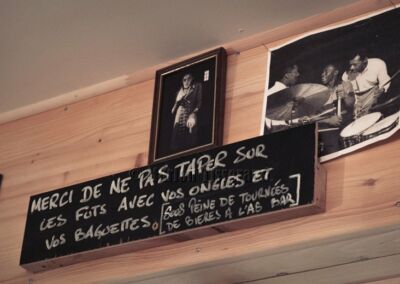 MERCI DE NE PAS TAPER SUR
LES FÛTS AVEC VOS ONGLES ET
VOS BAGUETTES.
[SOUS PEINE DE TOURNÉES
DE BIERES A L'AS BAR]